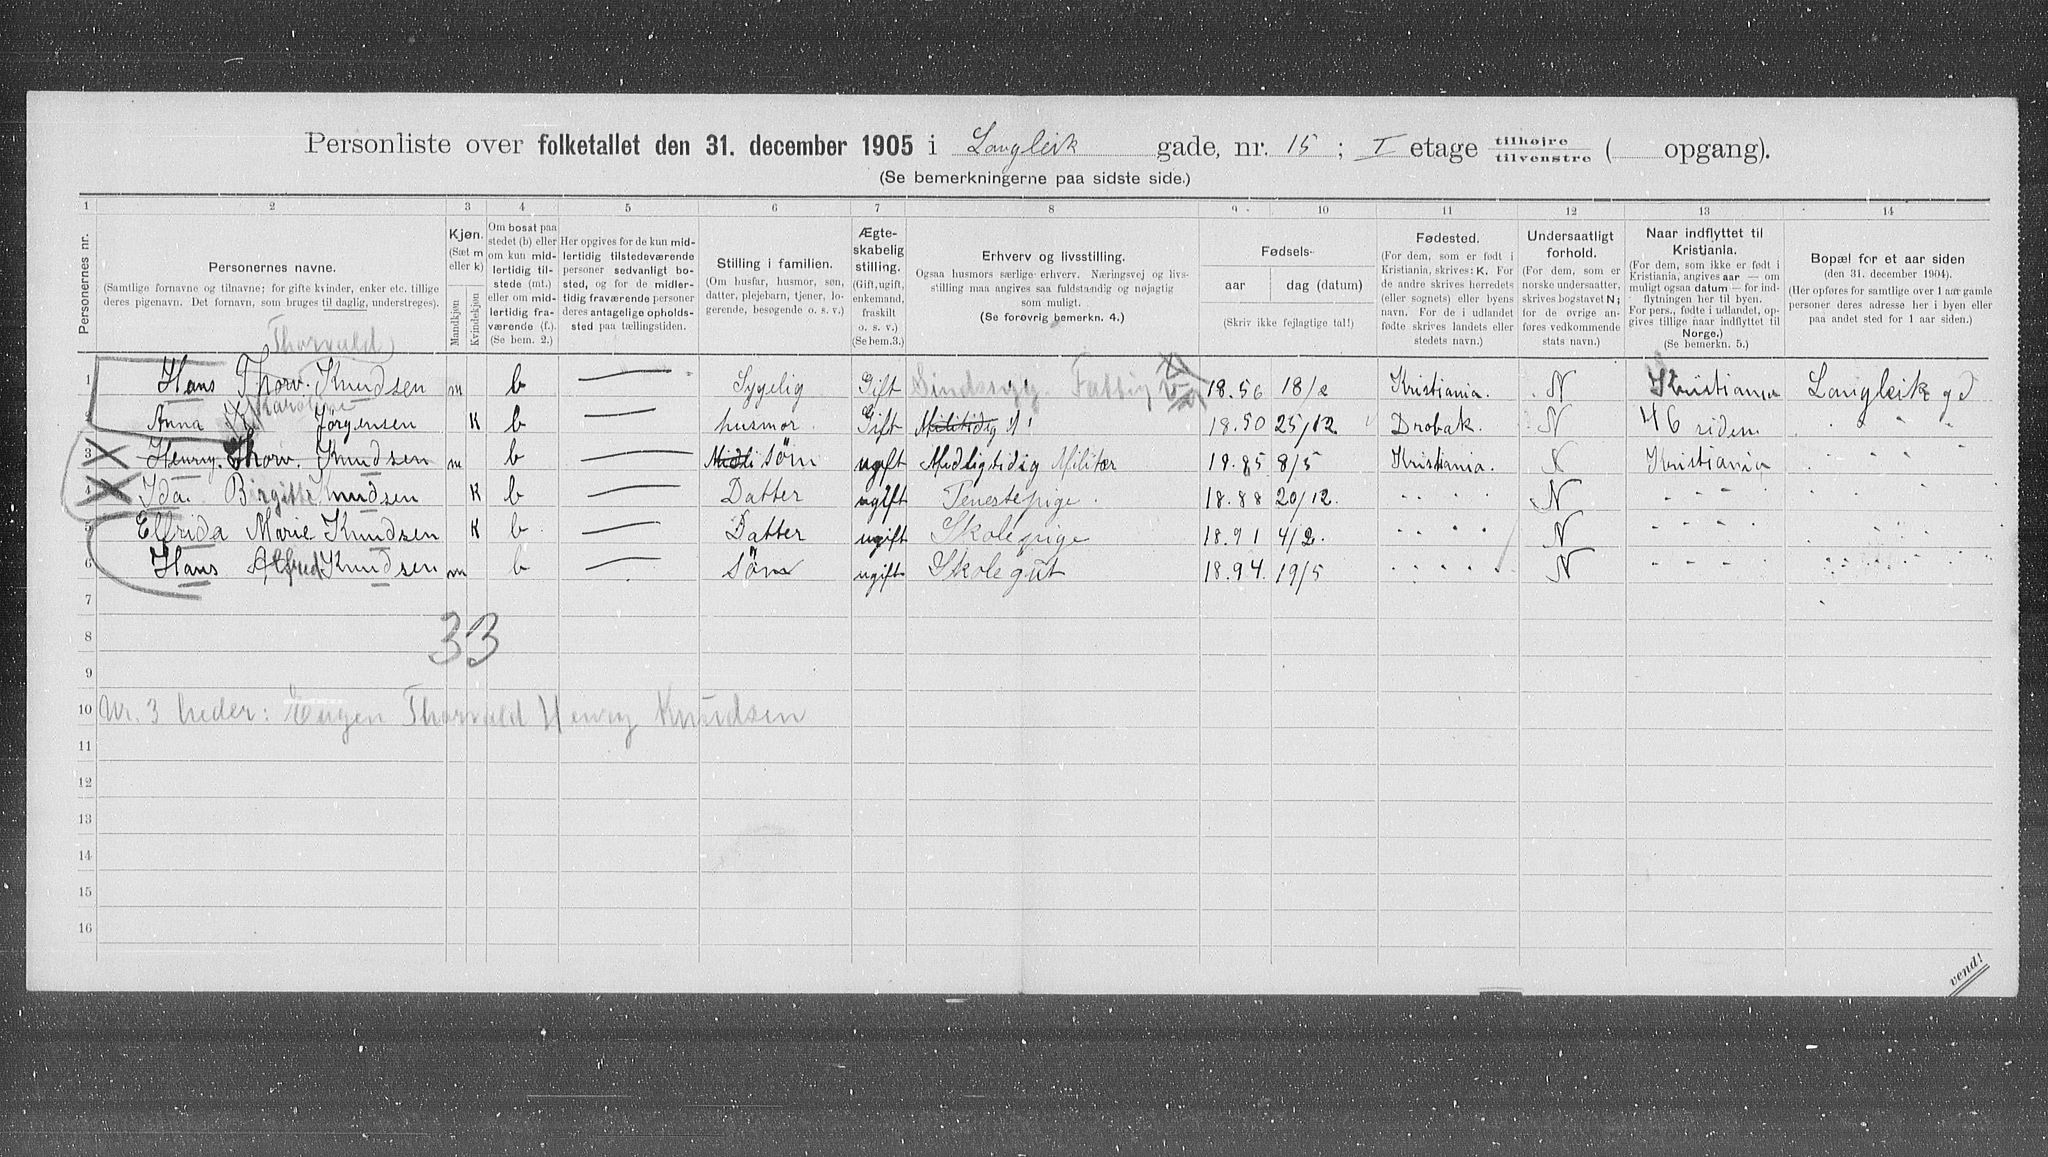 Personliste over folketallet den 31. december 1905 i Langleik gade, nr. 15 ; I etage tilhøjre tilvenstre ( opgang).
(Se bemerkningerne paa sidste side.)
1 2 3 4 5 6 7 8 9 10 11 12 13 14
Personernes nr.
Personernes navne.
(Samtlige fornavne og tilnavne; for gifte kvinder, enker etc. tillige
deres pigenavn. Det fornavn, som bruges til daglig, understreges).
Kjøn.
(Sæt m
eller k)
Mandkjøn
Kvindekjøn
Om bosat paa
stedet (b) eller
om kun mid-
lertidig til-
stede (mt.)
eller om mid-
lertidig fra-
værende (f.).
(Se bem. 2.)
Her opgives for de kun mid-
lertidig tilstedeværende
personer sedvanlig bo-
sted, og for de midler-
tidig fraværende personer
deres antagelige opholds-
sted paa tællingstiden.
Stilling i familien.
(Om husfar, husmor, søn,
datter, plejebarn, tjener, lo-
gerende, besøgende o. s. v.)
Ægte-
skabelig
stilling.
(Gift, ugift,
enkemand,
fraskilt
o. s. v.)
(Se bem.3.)
Erhverv og livsstilling.
Ogsaa husmors særlige erhverv. Næringsvej og livs-
stilling maa angives saa fuldstændig og nøjagtig
som muligt.
(Se forøvrig bemerkn. 4.)
Fødsels-
aar
dag (datum)
(Skriv ikke fejlagtige tal!)
Fødested.
(For dem, som er født i
Kristiania, skrives: K. For
de andre skrives herredets
(eller sognets) eller byens
navn. For de i udlandet
fødte skrives landets eller
stedets navn.)
Undersaatligt
forhold.
(For dem, som er
norske undersaatter,
skrives bogstavet N;
for de øvrige an-
føres vedkommende
stats navn.)
Naar indflyttet til
Kristiania.
(For dem, som ikke er født i
Kristiania, angives aar — om
muligt ogsaa datum — for ind-
flytningen her til byen.
For pers., fødte i udlandet, op-
gives tillige naar indflyttet til
Norge.)
(Se bemerkn. 5.)
Bopæl for et aar siden
(den 31. december 1904).
(Her opføres for samtlige over 1 aar gamle
personer deres adresse her i byen eller
paa andet sted for 1 aar siden.)
Thorvald
1 Hans Thorv. Knudsen m b Sygelig Gift Sindssyg. Fattig 18.56 18/2 Kristiania. N Kristiania Langleik gd
Karoline
2 Anna Jörgensen K b husmor. Gift 18.50 25/12 Drobak. N 46 siden " " "
3 Henry. Thorv. Knudsen m b Midli Sön ugift Midligtidig Militær 19.85 8/5 Kristiania. N Kristiania " " "
4 Ida. Birgitte Knudsen K b Datter ugift Tenestepige. 18.88 20/12 " " " N " " " " " "
5 Elfrida Marie Knudsen K b Datter ugift Skolepige 18.91 4/2. " " " N " " " " " "
6 Hans Alfred Knudsen m b Sön ugift Skolegut 18.94. 19/5 " " " N " " " " " "
7
33
8
9
10 Nr. 3 heder: Eugen Thorvald Henry Knudsen
11
12
13
14
15
16
vend!